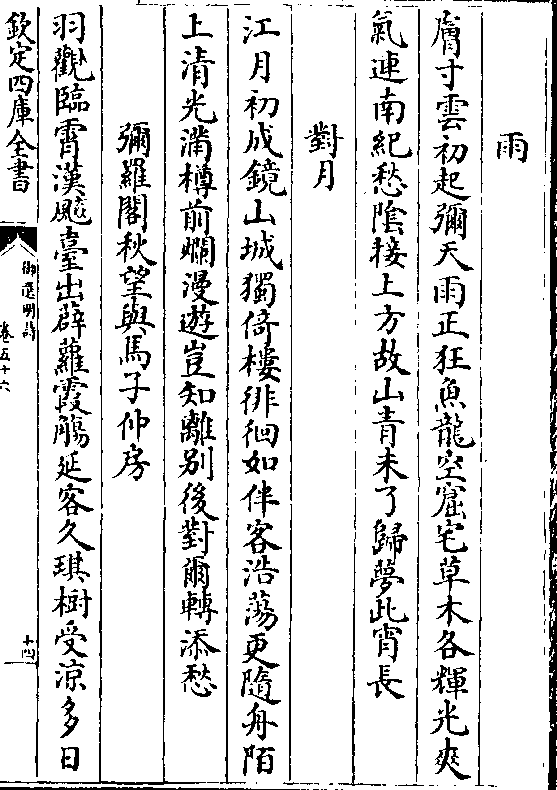 雨
膚寸雲初起彌天雨正狂魚龍空窟宅草木各輝光爽
氣連南紀愁陰接上方故山青未了歸夢此宵長
對月
江月初成鏡山城獨倚樓徘徊如伴客浩蕩更隨舟陌
上清光滿樽前爛漫遊豈知離别後對爾轉添愁
彌羅閣秋望與馬子仲房
羽觀臨霄漢飈臺出薜蘿霞觴延客久琪樹受凉多日
欽定四庫全書
御選明詩
卷五十六
十四